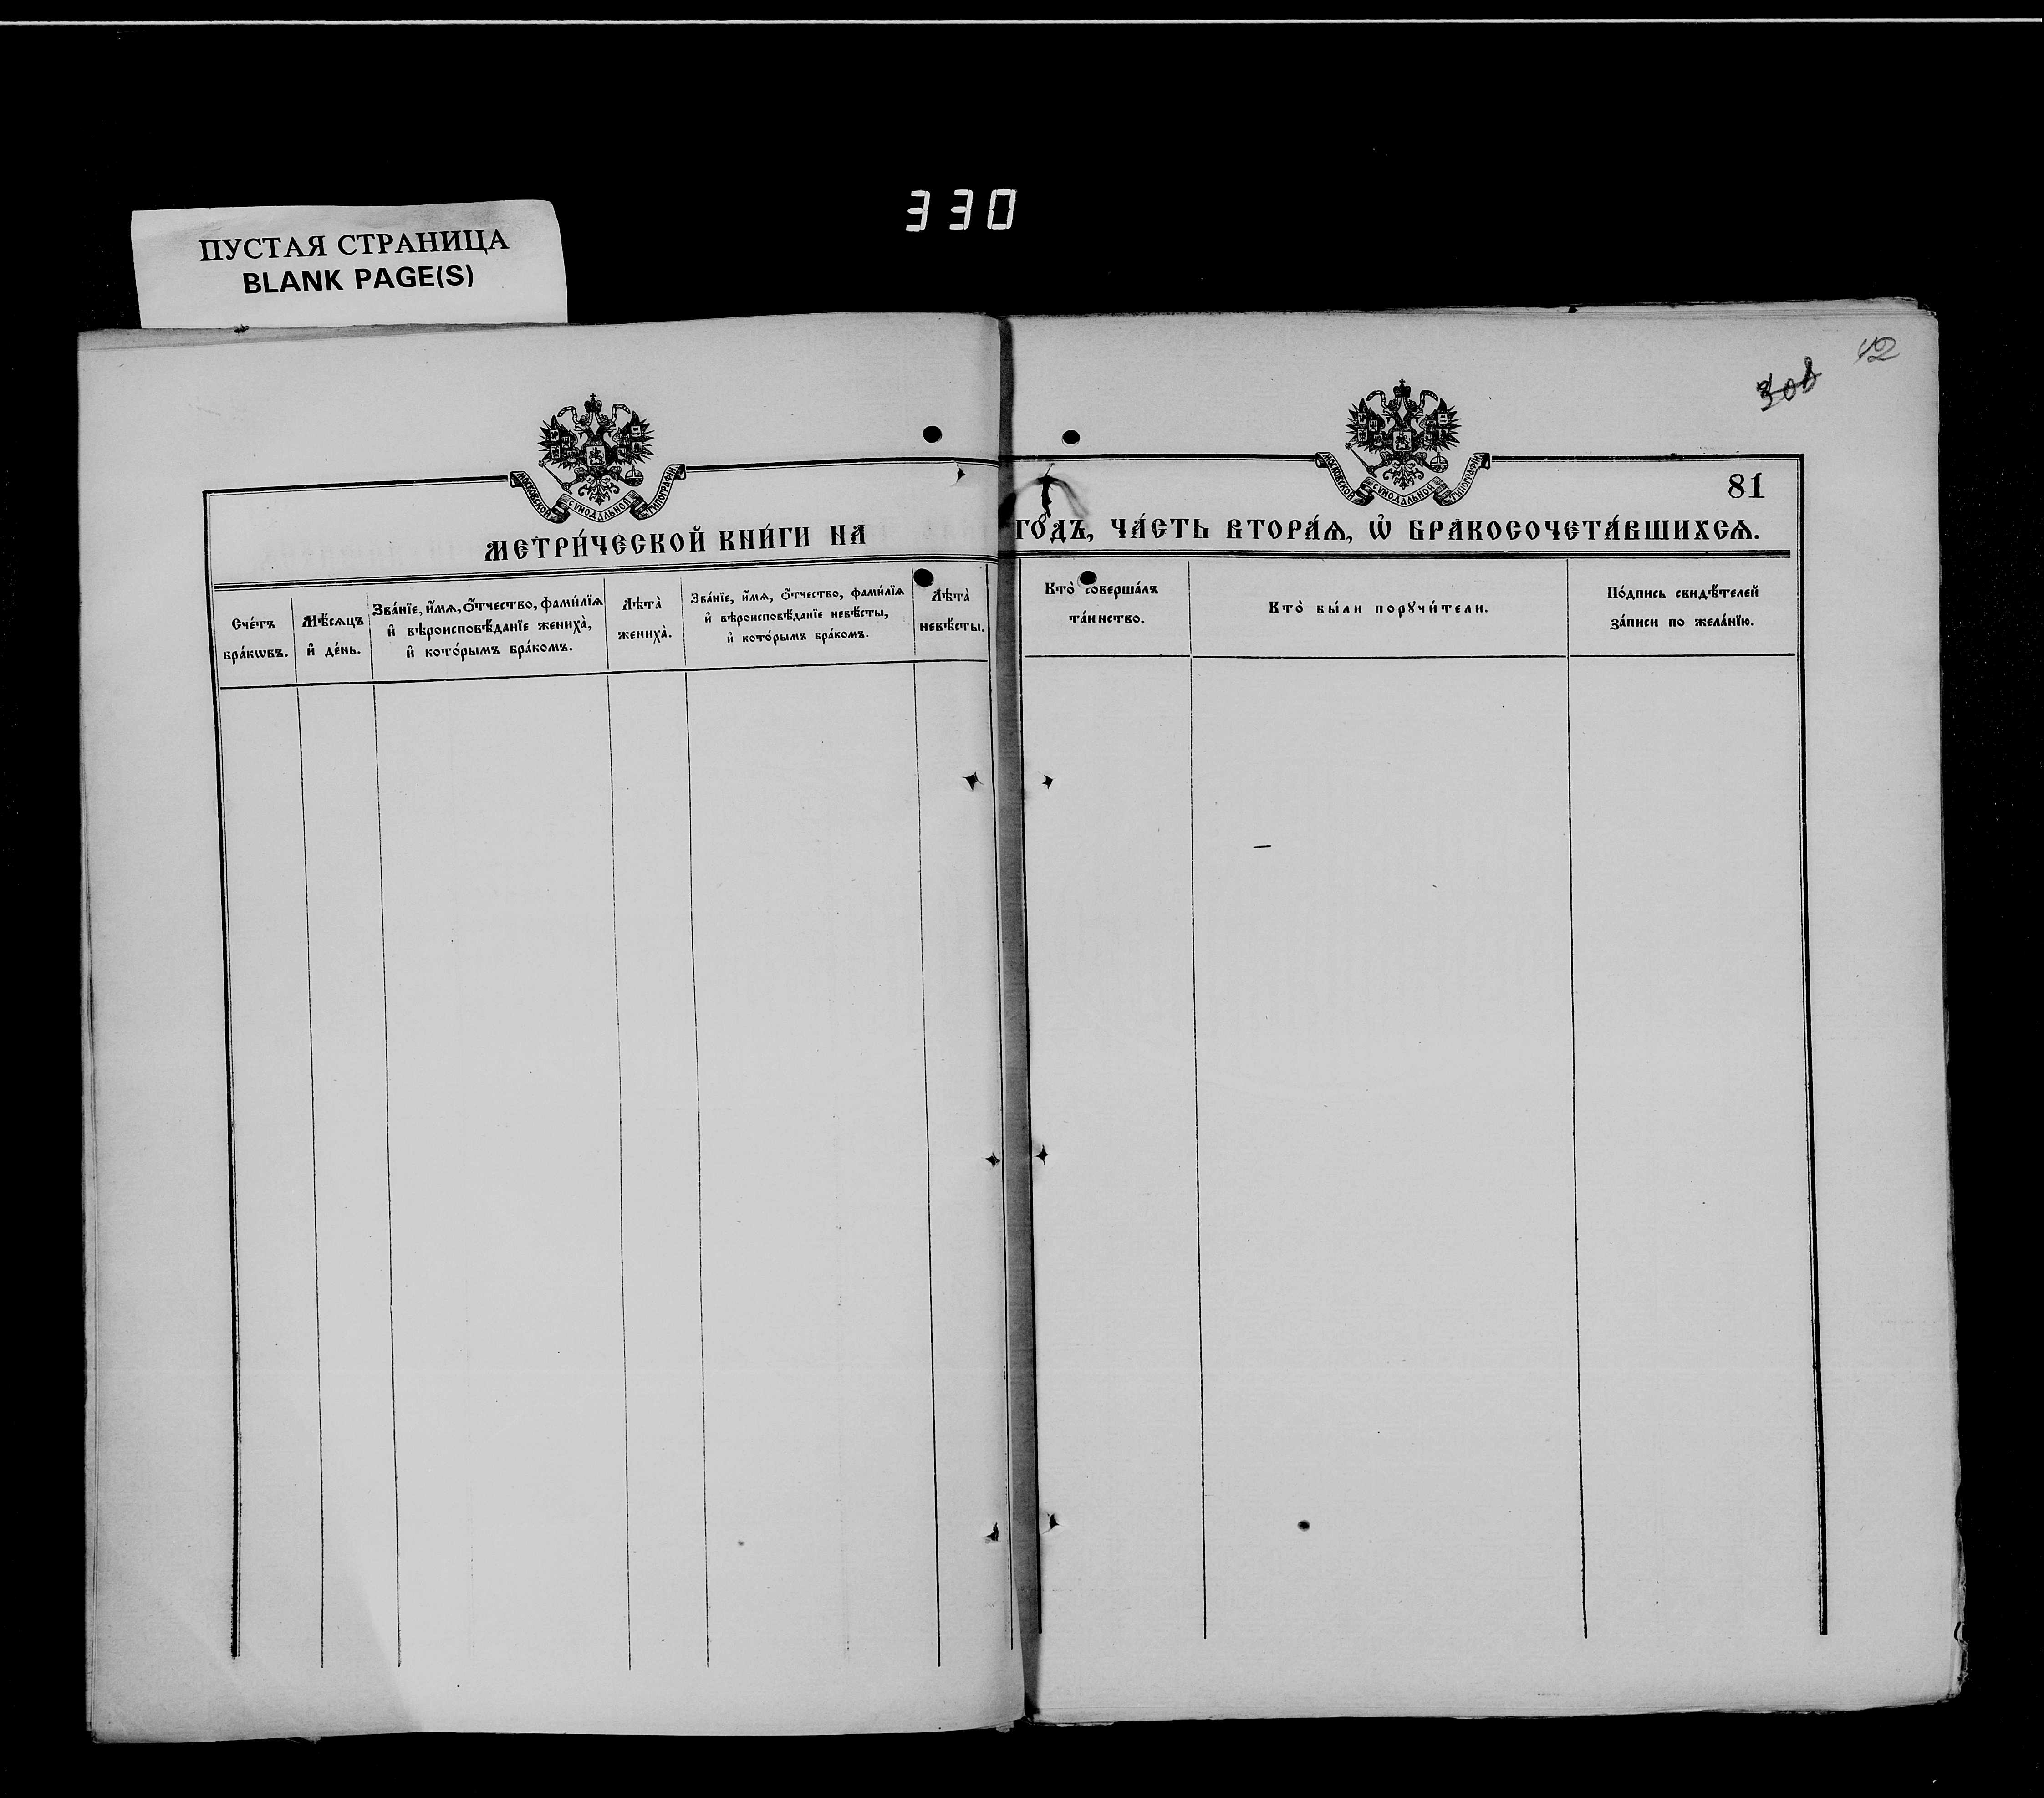 330
ПУСТАЯ СТРАНИЦА
BLANK PAGE(S)
12
81
МОСКОВСКОЙ СѴНОДАЛЬНОЙ ТИПОГРАФІИ
МОСКОВСКОЙ СѴНОДАЛЬНОЙ ТИПОГРАФІИ
МЕТРИ́ЧЕСКОЙ КНИ́ГИ НА ГО́ДЪ, ЧА́СТЬ ВТОРА́Ѧ, Ѽ БРАКОСОЧЕТА́ВШИХСѦ.
Сче́тъ
бра́кѡвъ.
Мѣ́сѧцъ
и҆ де́нь.
Зва́нїе, и҆́мѧ, ѻ҆́тчество, фами́лїѧ
и҆ вѣроисповѣ́данїе жениха̀,
и҆ кото́рымъ бра́комъ.
Лѣта̀
жениха̀.
Зва́нїе, и҆́мѧ, ѻ҆́тчество, фами́лїѧ
и҆ вѣроисповѣ́данїе невѣ́сты,
и҆ кото́рымъ бра́комъ.
Лѣта̀
невѣ́сты.
Кто̀ соверша́лъ
та́инство.
Кто̀ бы́ли порꙋчи́тели.
По́дпись свидѣ́телей
за́писи по жела́нїю.